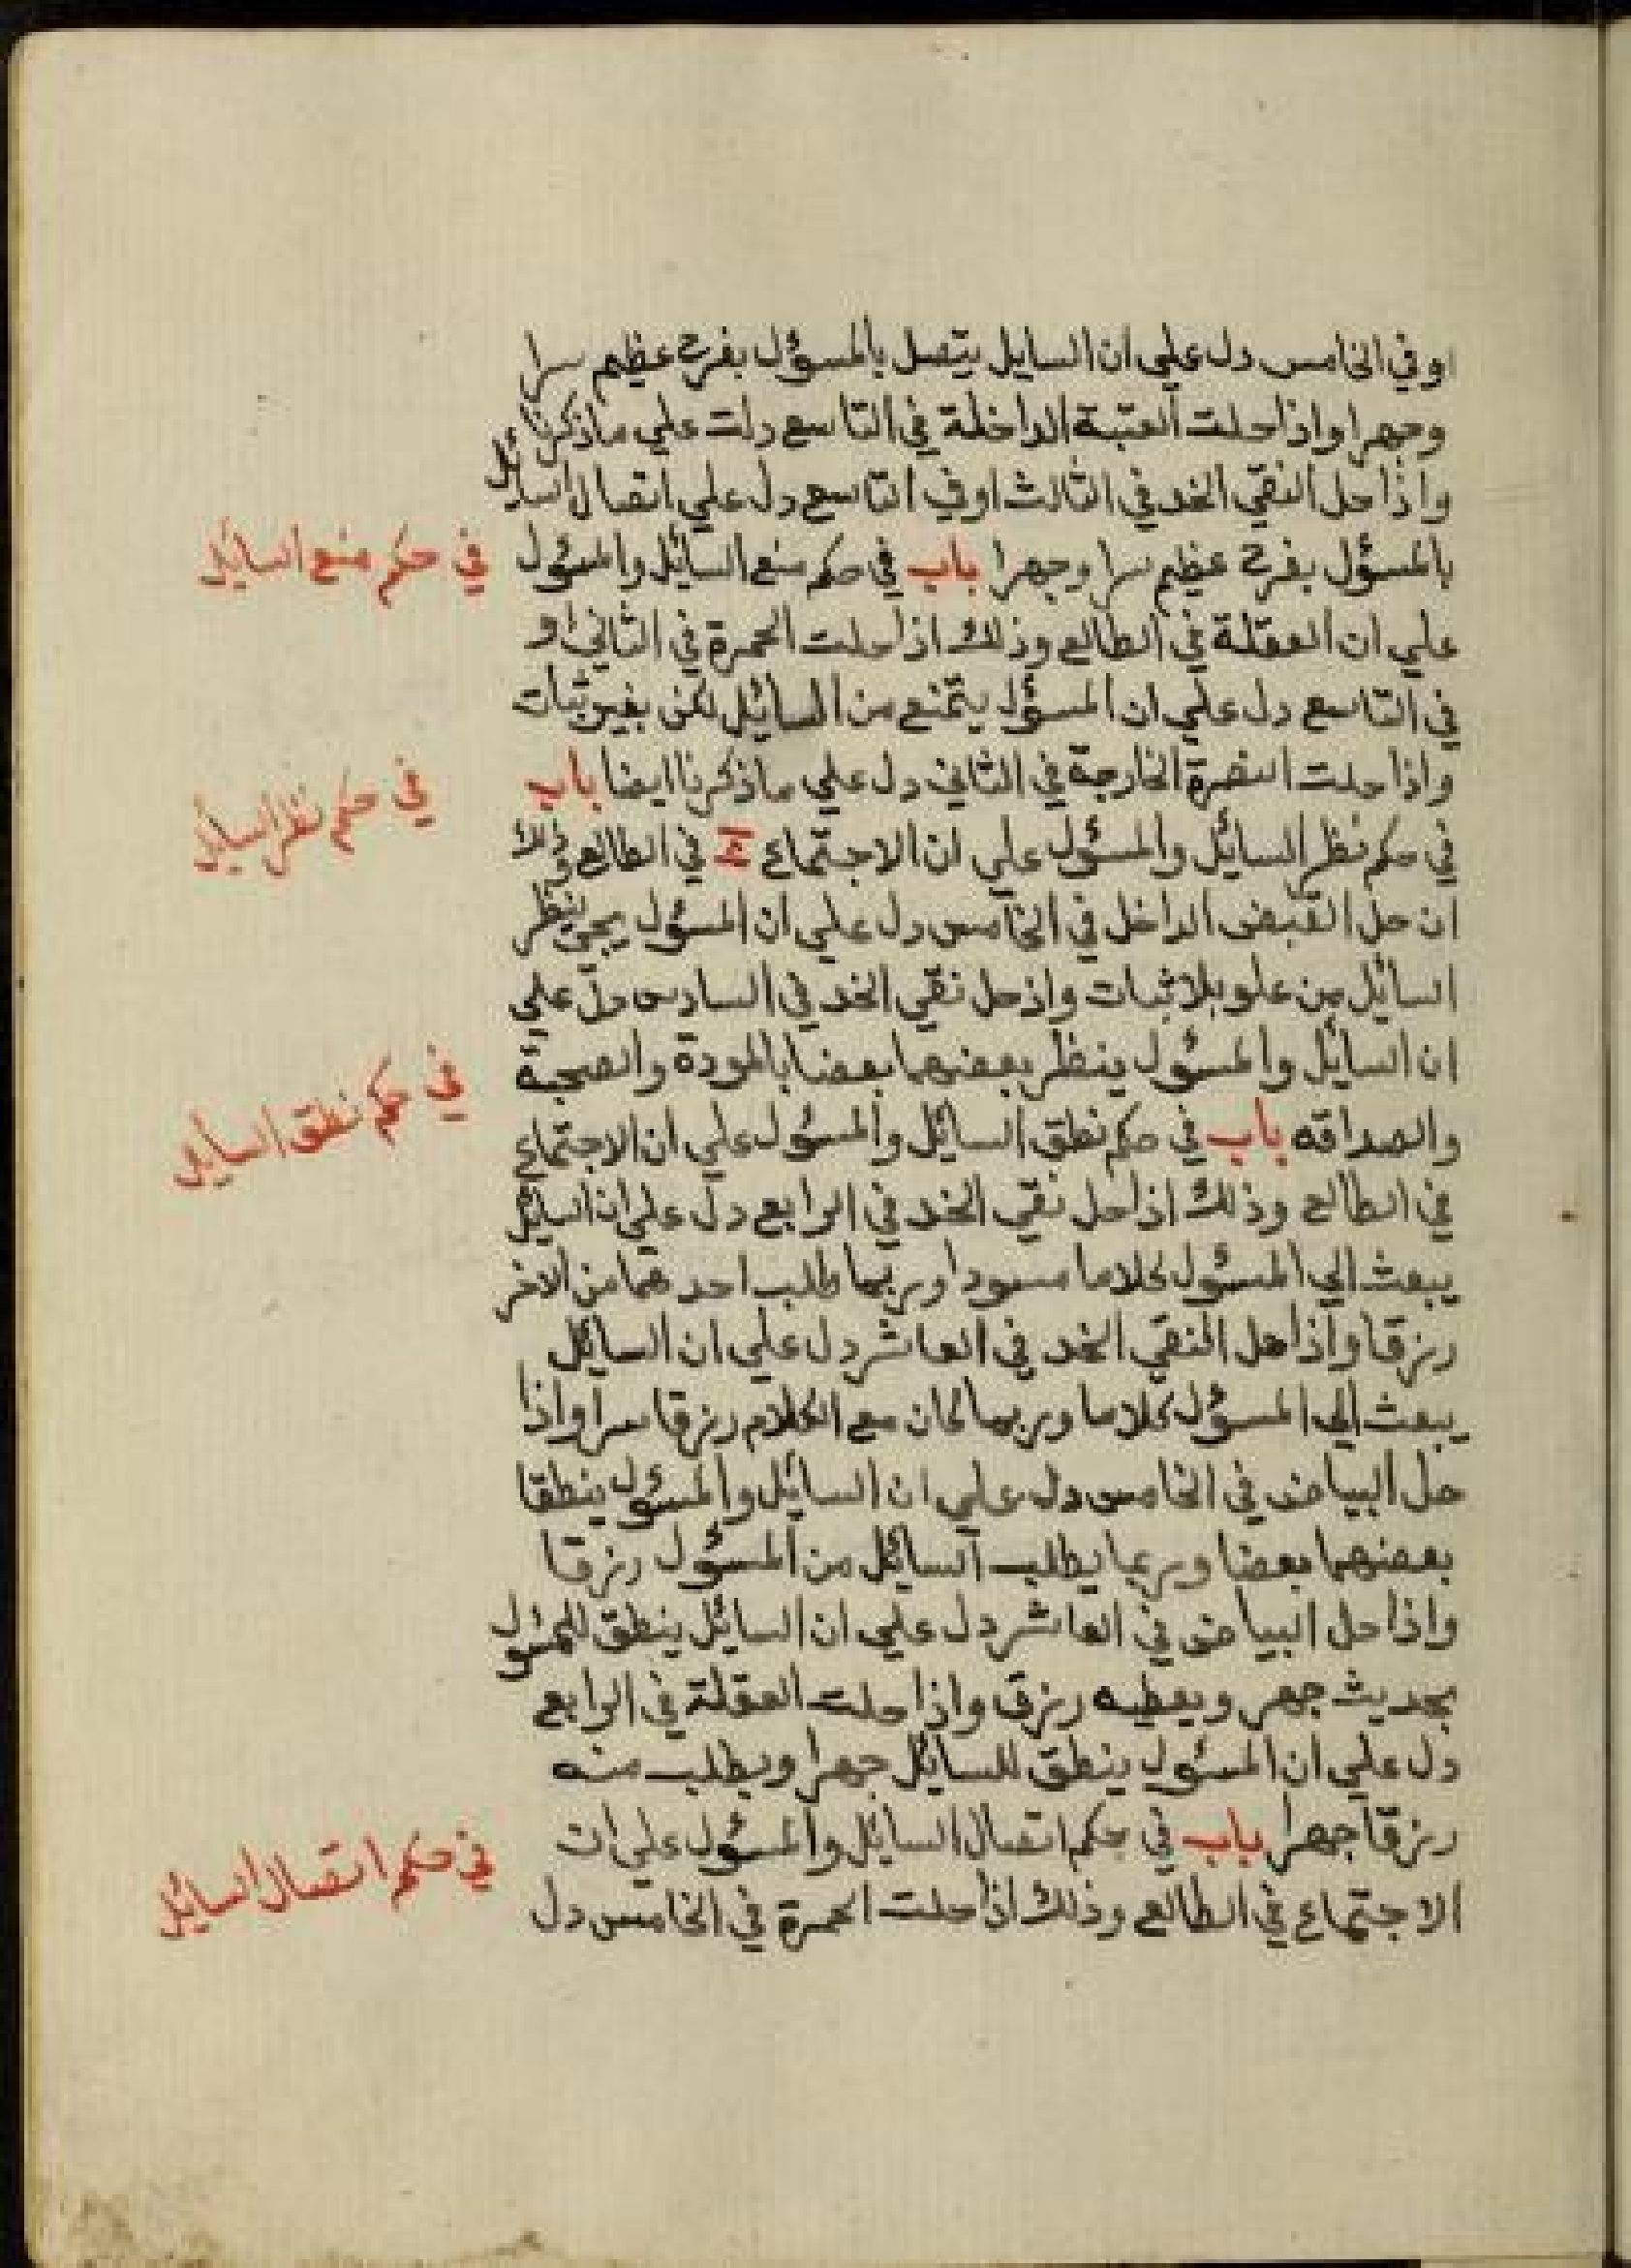 او في الخامس دل علي ان السايل يتصل بالمسؤل بفرح عظيم سرا
وجهرا واذا حلت العتبة الداخلة في التاسع دلت علي ما ذكرنا
واذا حل النقي الخد في الثالث او في التاسع دل علي اتصال السائل
بالمسؤل بفرح عظيم سرا وجهرا باب في حكم منع السائل والمسؤل
في حكم منع السائل
علي ان العقلة في الطالع وذلك اذا حلت الحمرة في الثاني او
في التاسع دل علي ان المسؤل يتمنع من السائل لكن بغير ثبات
واذا حلت النصرة الخارجة في الثاني دل علي ما ذكرنا ايضا باب
في حكم نظر السايل
في حكم نظر السائل والمسؤل علي ان الاجتماع في الطالع وذلك
ان حل القبض الداخل في الخامس دل علي ان المسؤل يجي ينظر
السائل من علو بلا ثبات واذ حل نقي الخد في السادس دل علي
ان السائل والمسؤل ينظر بعضهما بعضا بالمودة والصحبة
في حكم نطق السايل
والصداقه باب في حكم نطق السائل والمسؤل علي ان الاجتماع
في الطالع وذلك اذا حل نقي الخد في الرابع دل علي ان السايل
يبعث الي المسؤل كلاما مسودا وربما طلب احدهما من الاخر
رزقا واذا حل النقي الخد في العاشر دل علي ان السائل
يبعث الي المسؤل كلاما وربما كان مع الكلام رزقا سرا واذا
حل البياض في الخامس دل علي ان السائل والمسؤل ينطقا
بعضهما بعضا وربما يطلب السائل من المسؤل رزقا
واذا حل البياض في العاشر دل علي ان السائل ينطق للمسؤل
بحديث جهر ويعطيه رزق واذا حلت العقلة في الرابع
دل علي ان المسؤل ينطق للسائل جهرا ويطلب منه
رزقا جهرا باب في حكم اتصال السائل والمسؤل علي ان
في حكم اتصال السائل
الاجتماع في الطالع وذلك اذا حلت الحمرة في الخامس دل